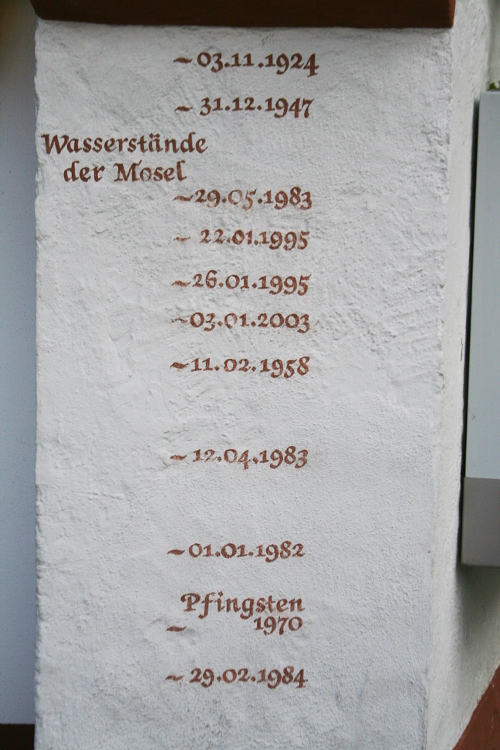 ~ 03.11.1924
~ 31.12.1947
Wasserstände
der Mosel
~29.05.1983
~ 22.01.1995
~26.01.1995
~03.01.2003
~11.02.1958
~ 12.04.1983
~01.01.1982
Pfingsten
~ 1970
~ 29.02.1984